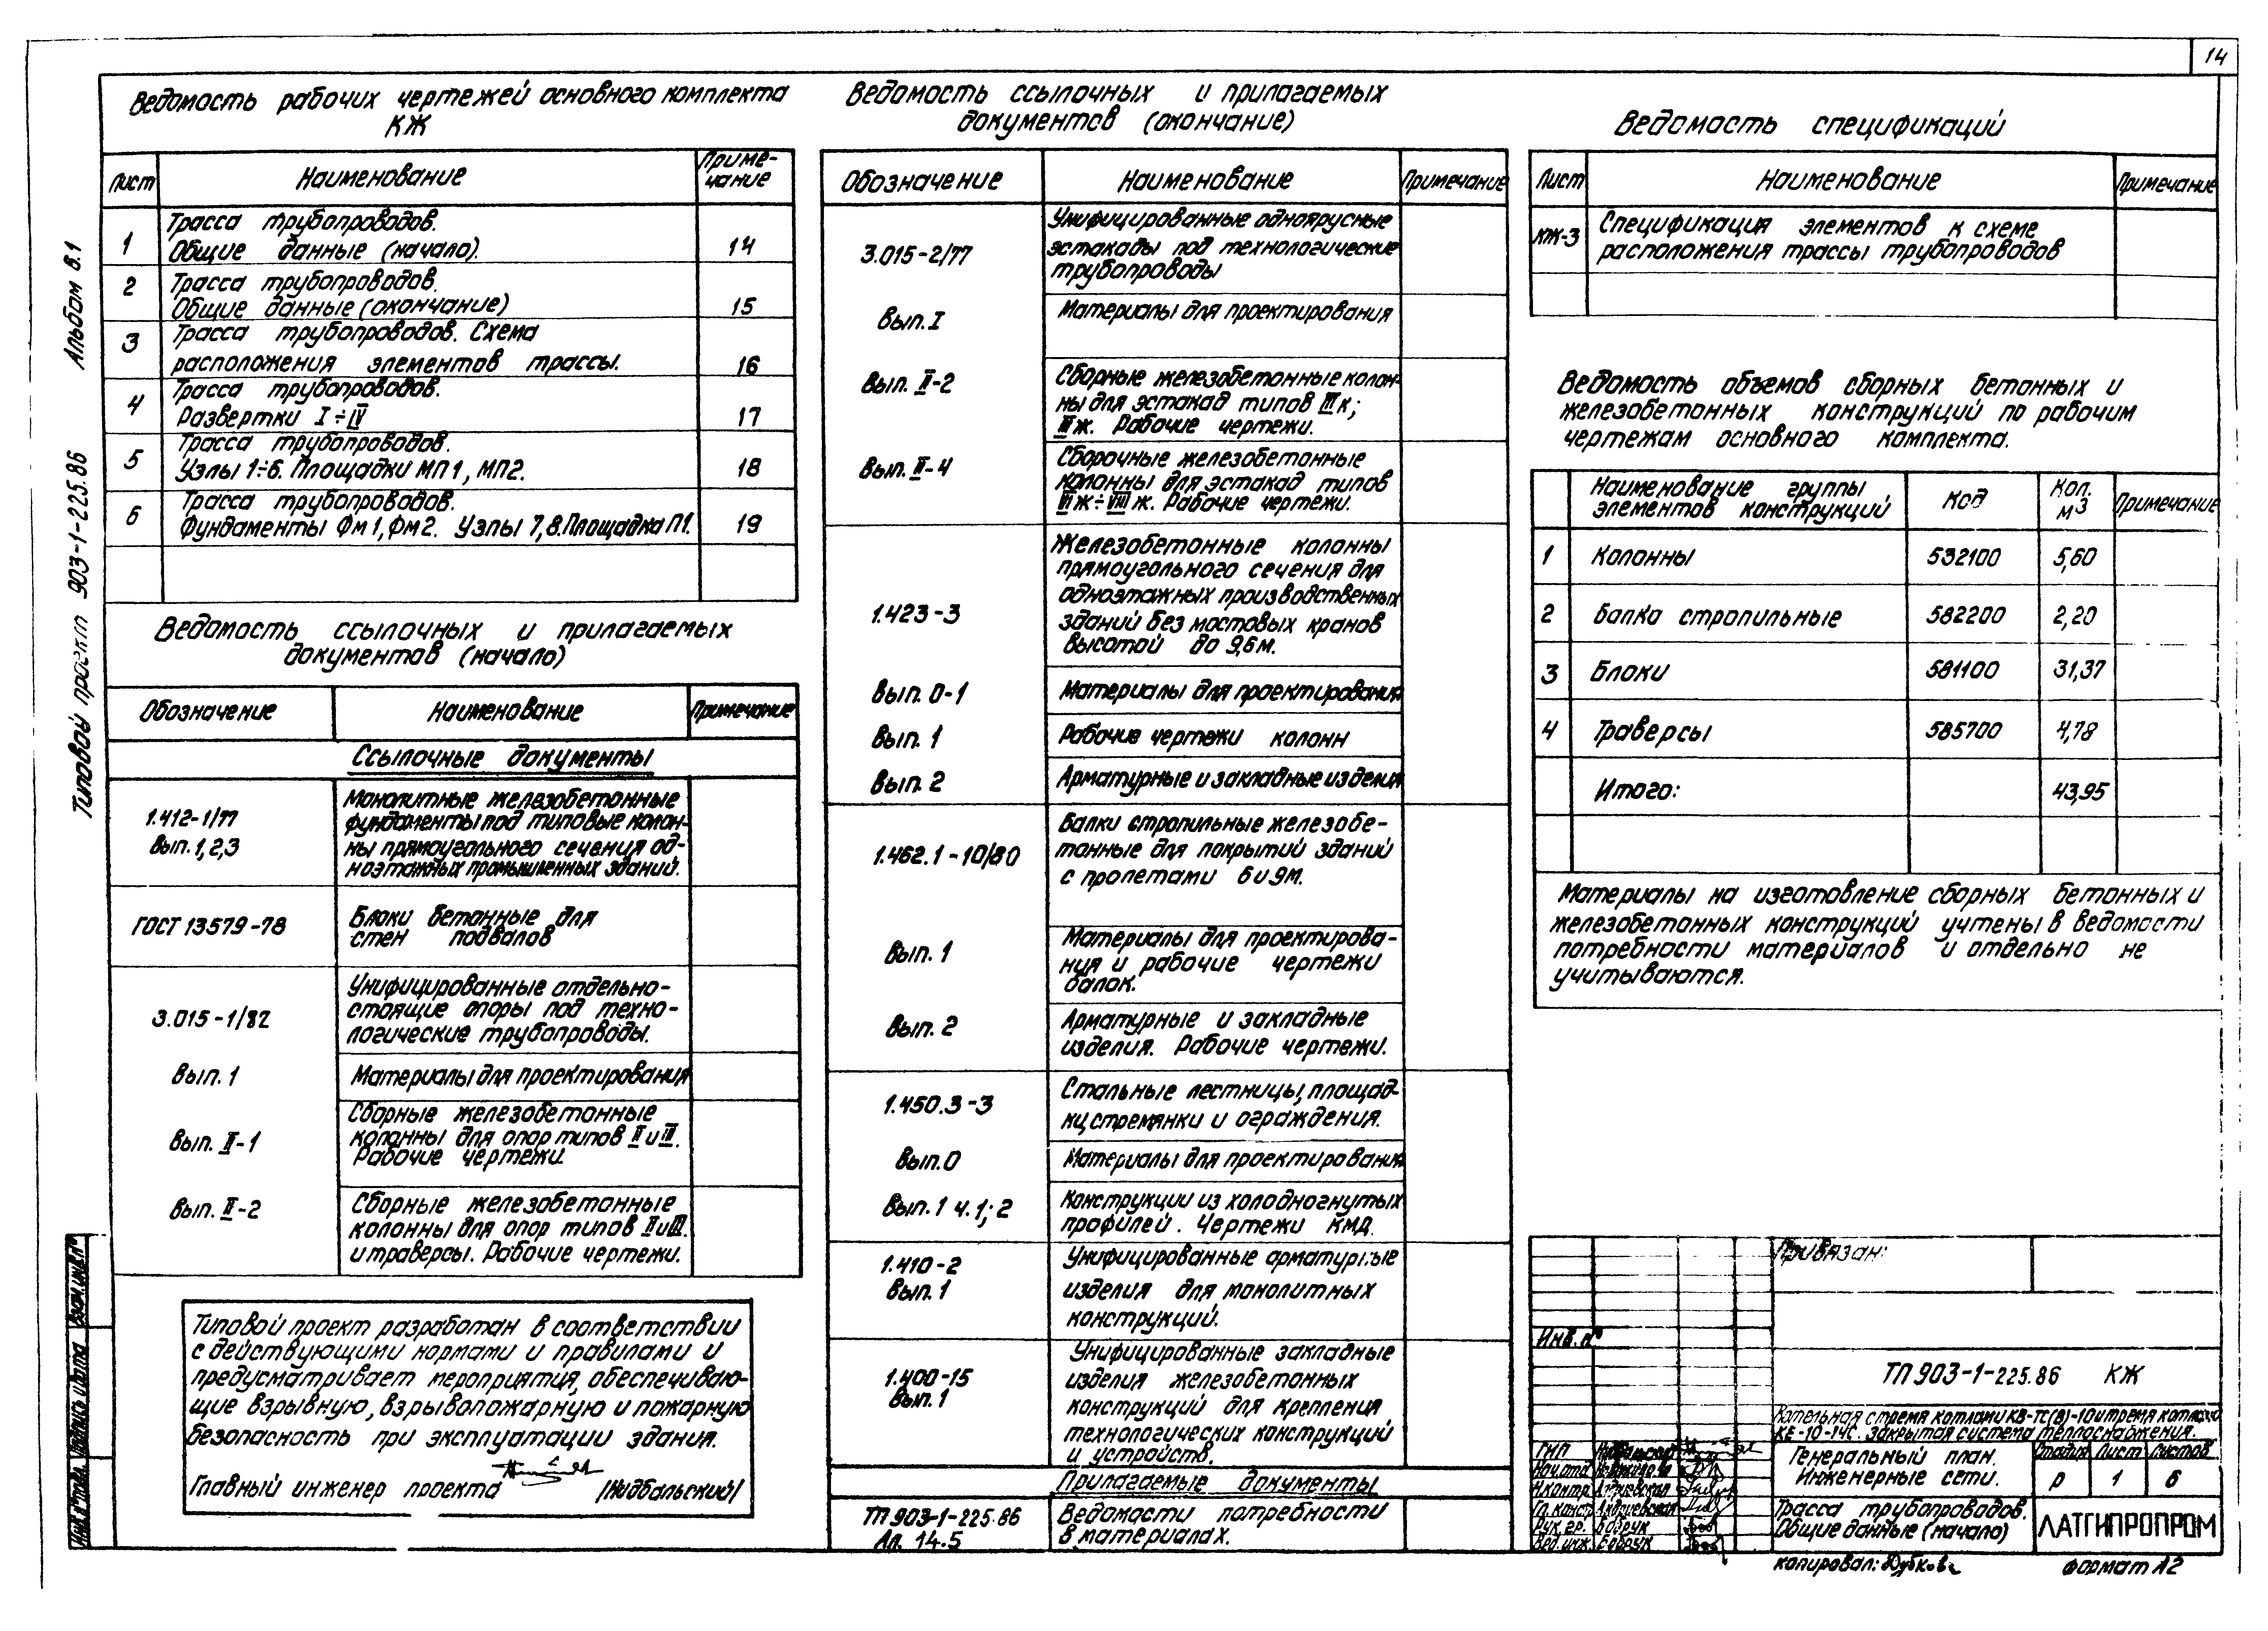 14
Ведомость рабочих чертежей основного комплекта
КЖ
Лист
Наименование
Приме-
чание
1
Трасса трубопроводов.
Общие данные (начало).
14
2
Трасса трубопроводов.
Общие данные (окончание)
15
3
Трасса трубопроводов. Схема
расположения элементов трассы.
16
4
Трасса трубопроводов.
Развертки I÷IV
17
5
Трасса трубопроводов.
Узлы 1÷6. Площадки МП1, МП2.
18
6
Трасса трубопроводов.
Фундаменты Фм1, Фм2. Узлы 7,8. Площадка П1.
19
Ведомость ссылочных и прилагаемых
документов (начало)
Обозначение
Наименование
Примечание
Ссылочные документы
1.412-1/77
Вып. 1,2,3
Монолитные железобетонные
фундаменты под типовые колон-
ны прямоугольного сечения од-
ноэтажных промышленных зданий.
ГОСТ 13579-78
Блоки бетонные для
стен подвалов
3.015-1/82
Унифицированные отдельно-
стоящие опоры под техно-
логические трубопроводы.
Вып. 1
Материалы для проектирования
Вып. II-1
Сборные железобетонные
колонны для опор типов II и III.
Рабочие чертежи.
Вып. II-2
Сборные железобетонные
колонны для опор типов II и III.
и траверсы. Рабочие чертежи.
Типовой проект разработан в соответствии
с действующими нормами и правилами и
предусматривает мероприятия, обеспечиваю-
щие взрывную, взрывопожарную и пожарную
безопасность при эксплуатации здания.
Главный инженер проекта /Нидбальский/
Ведомость ссылочных и прилагаемых
документов (окончание)
Обозначение
Наименование
Примечание
3.015-2/77
Унифицированные одноярусные
эстакады под технологические
трубопроводы
Вып. I
Материалы для проектирования
Вып. II-2
Сборные железобетонные колон-
ны для эстакад типов III к;
III ж. Рабочие чертежи.
Вып. II-4
Сборочные железобетонные
колонны для эстакад типов
VI ж ÷ VIII ж. Рабочие чертежи.
1.423-3
Железобетонные колонны
прямоугольного сечения для
одноэтажных производственных
зданий без мостовых кранов
высотой до 9,6 м.
Вып. 0-1
Материалы для проектирования
Вып. 1
Рабочие чертежи колонн
Вып. 2
Арматурные и закладные изделия
1.462.1-10/80
Балки стропильные железобе-
тонные для покрытий зданий
с пролетами 6 и 9м.
Вып. 1
Материалы для проектирова-
ния и рабочие чертежи
балок.
Вып. 2
Арматурные и закладные
изделия. Рабочие чертежи.
1.450.3-3
Стальные лестницы, площад-
ки, стремянки и ограждения.
Вып. 0
Материалы для проектирования
Вып. 1 ч. 1; 2
Конструкции из холодногнутых
профилей. Чертежи КМД.
1.410-2
Вып. 1
Унифицированные арматурные
изделия для монолитных
конструкций.
1.400-15
Вып. 1
Унифицированные закладные
изделия железобетонных
конструкций для крепления
технологических конструкций
и устройств.
Прилагаемые документы
ТП 903-1-225.86
Ал. 14.5
Ведомости потребности
в материалах.
Ведомость спецификаций
Лист
Наименование
Примечание
КЖ-3
Спецификация элементов к схеме
расположения трассы трубопроводов
Ведомость объемов сборных бетонных и
железобетонных конструкций по рабочим
чертежам основного комплекта.
Наименование группы
элементов конструкций
Код
Кол.
м3
Примечание
1
Колонны
532100
5,60
2
Балка стропильные
582200
2,20
3
Блоки
581100
31,37
4
Траверсы
585700
4,78
Итого:
43,95
Материалы на изготовление сборных бетонных и
железобетонных конструкций учтены в ведомости
потребности материалов и отдельно не
учитываются.
Привязан:
Инв. №
ТП 903-1-225.86 КЖ
Котельная с тремя котлами КВ-ТС(В)-10 и тремя котлами
КЕ-10-14С. Закрытая система теплоснабжения.
ГИП
Нач.отд
Н.контр. Андриевская
Гл.констр. Андриевская
Рук. гр. Бобрук
Вед.инж. Бобрук
Генеральный план.
Инженерные сети.
Стадия Лист Листов
Р 1 6
Трасса трубопроводов.
Общие данные (начало)
ЛАТГИПРОПРОМ
копировал: Дубкова
формат А2
Типовой проект 903-1-225.86 Альбом 8.1
Инв.№ подл. Подпись и дата Взам.инв.№